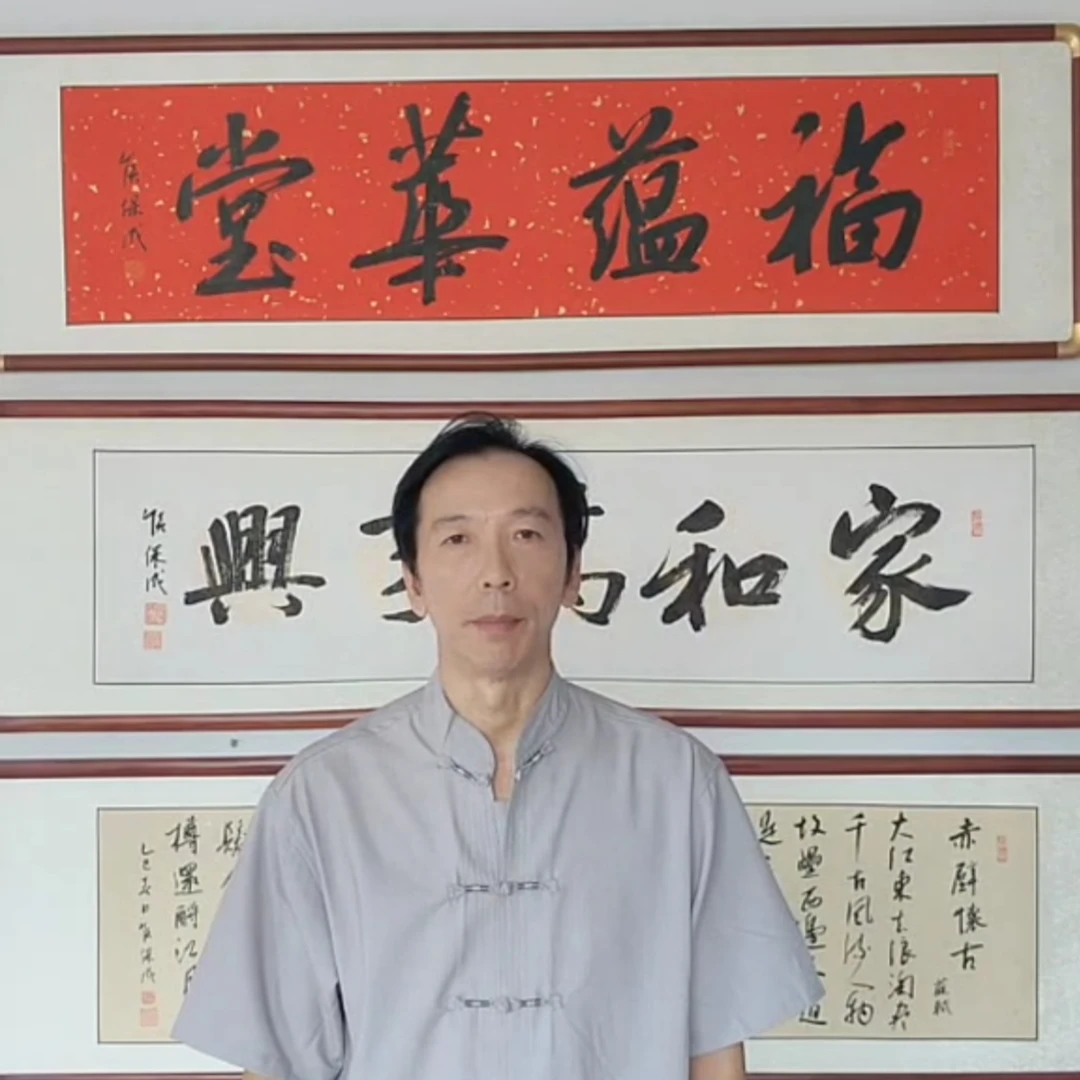 福蕴華堂
侯保成
家和興
侯保成
赤壁懷古
蘇軾
大江東去浪淘盡
千古風流人物
故壘西邊人道
是
樽還酹江月
乙巳夏日侯保成